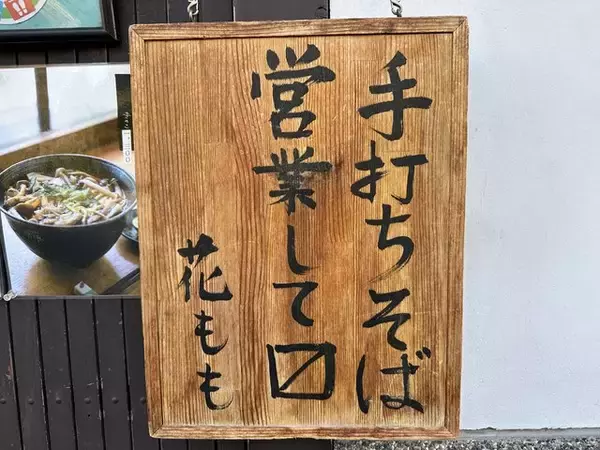 手打ちそば
営業して〼
花もも